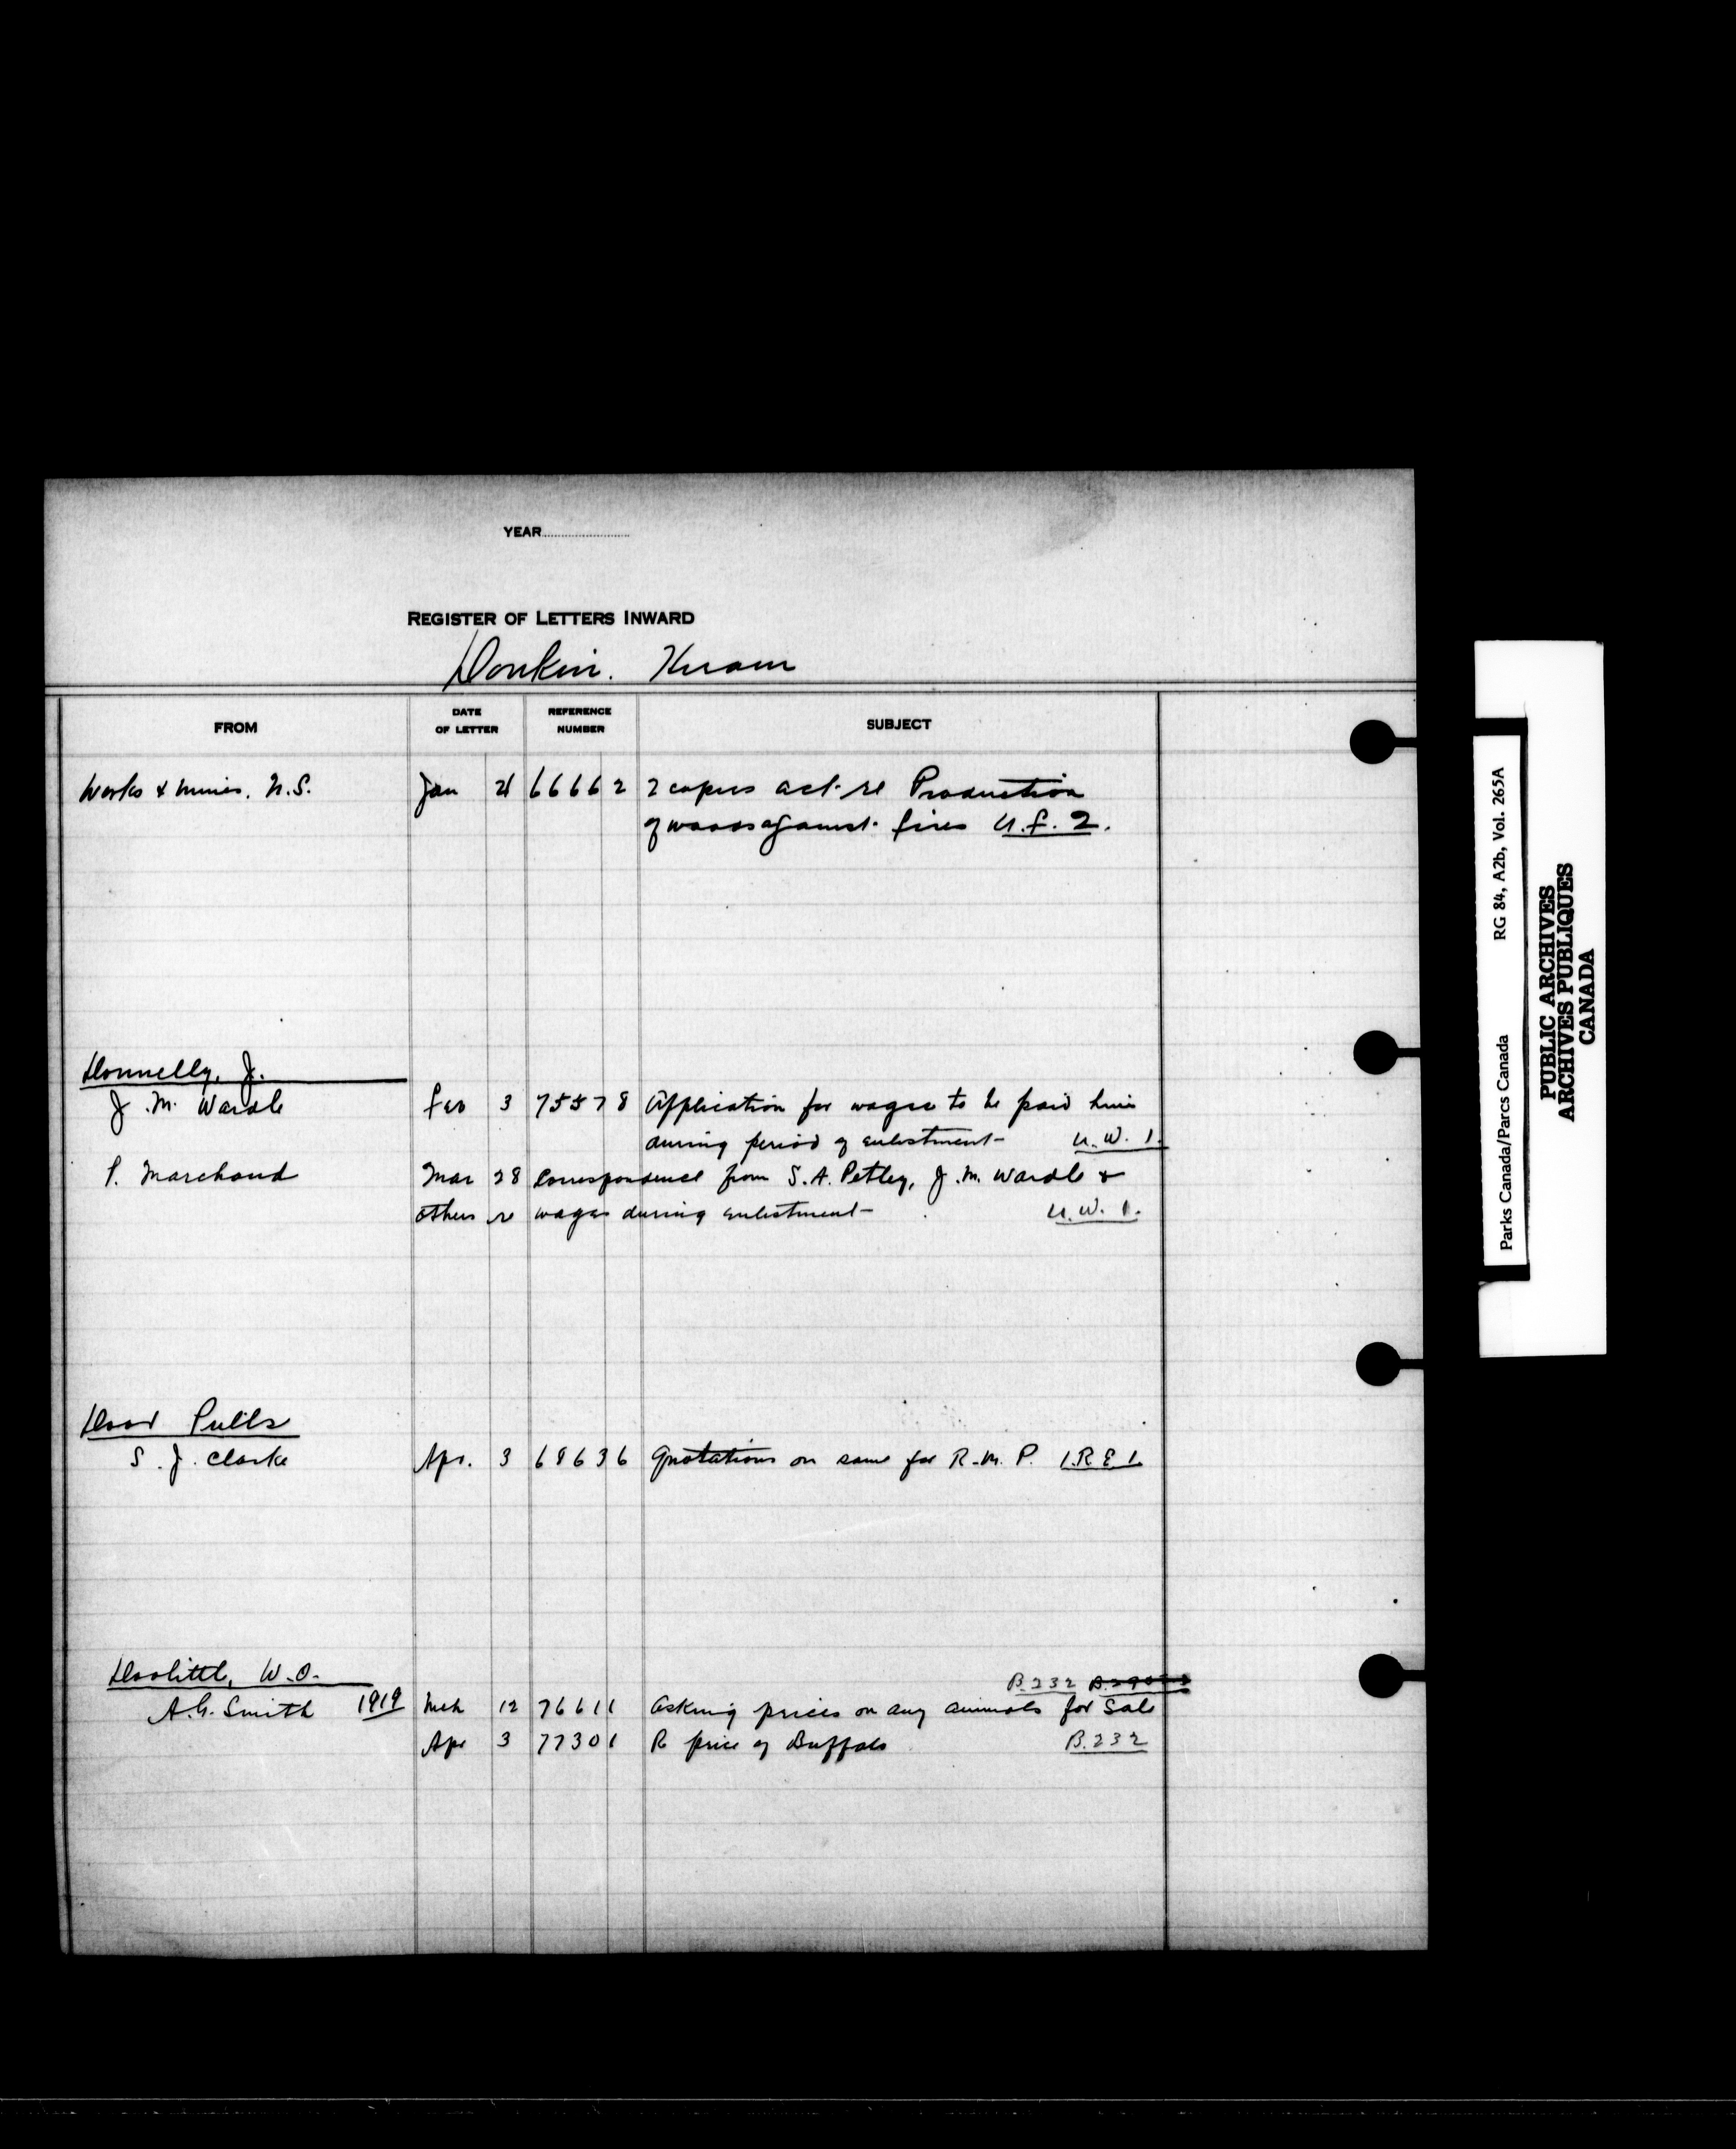 YEAR
REGISTER OF LETTERS INWARD
Donkin. Hiram
FROM DATE OF LETTER REFERENCE NUMBER SUBJECT
Works & Mines, N.S. Jan 21 66662 2 copies act re Production
of woods against fires U.F.2.
Donnelly, J.
J. M. Wardle Feb 3 75578 Application for wages to be paid him
during period of enlistment U.W.1.
P. Marchand Mar 28 Correspondence from S.A. Petley, J.M. Wardle &
others re wages during enlistment U.W.1.
Door Pulls
S. J. Clarke Apr. 3 68636 Quotations on same for R.M.P. I.R.E.1.
Doolittle, W.O. B.232
A.G. Smith 1919 Mch 12 76611 Asking prices on any animals for Sale
Apr 3 77301 Re price of Buffalo B.232
Parks Canada/Parcs Canada RG 84, A2b, Vol. 265A
PUBLIC ARCHIVES
ARCHIVES PUBLIQUES
CANADA